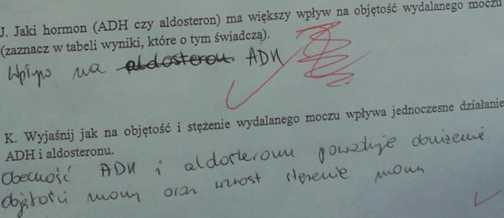 J. Jaki hormon (ADH czy aldosteron) ma większy wpływ na objętość wydalanego moczu
(zaznacz w tabeli wyniki, które o tym świadczą).
Wpływ ma aldosteron ADH
K. Wyjaśnij jak na objętość i stężenie wydalanego moczu wpływa jednoczesne działanie
ADH i aldosteronu.
Obecność ADH i aldosteronu powoduje obniżenie
objętości moczu oraz wzrost stężenie moczu